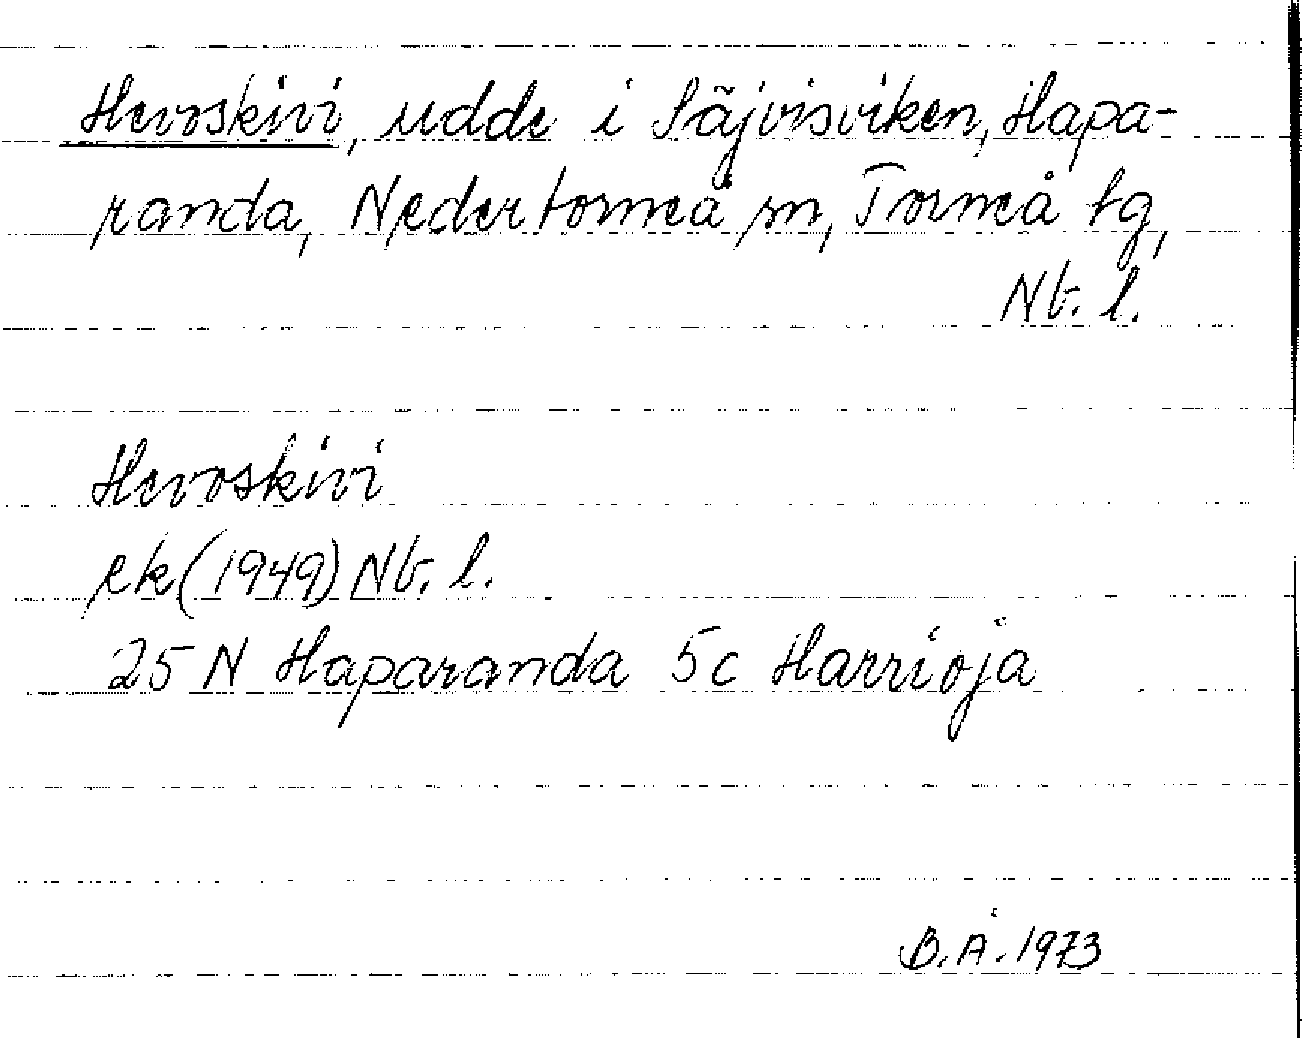 Hevoskivi, udde i Säjvisviken, Hapa-
randa, Nedertorneå sn, Torneå tg,
Nb. l.
Hevoskivi
ek (1949) Nb. l.
25 N Haparanda 5c Harrioja
B.Å. 1973